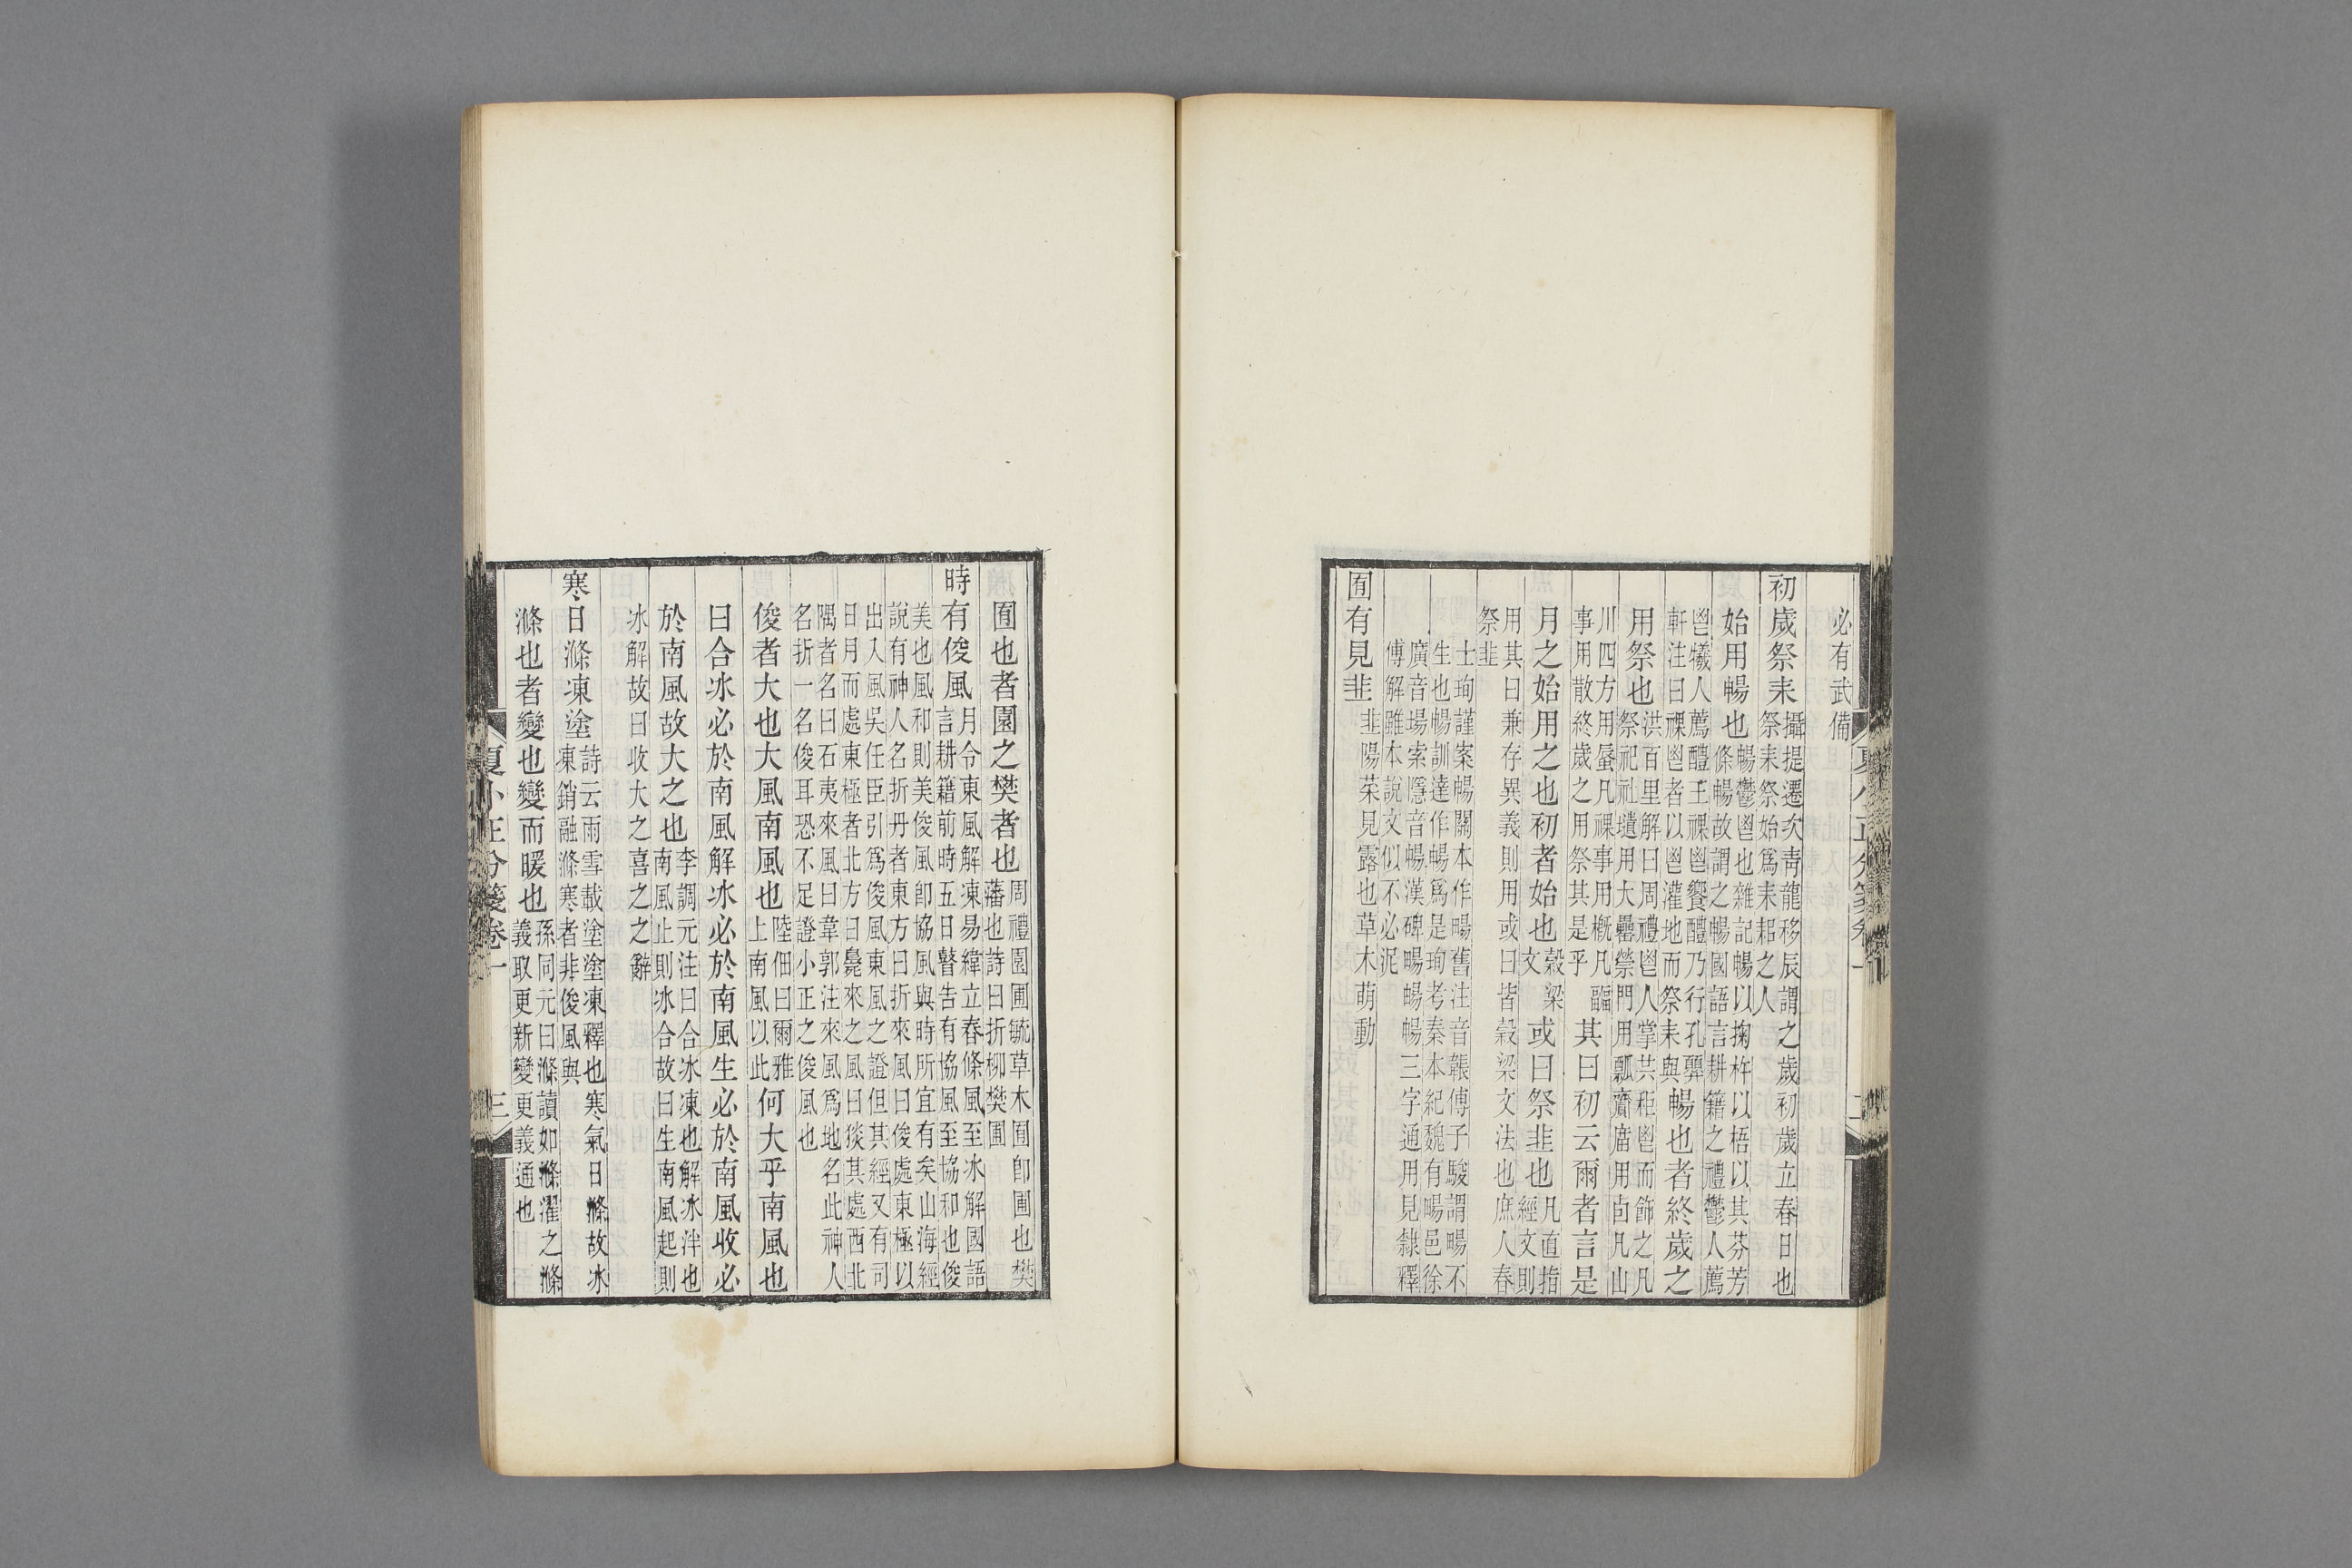 必有武備
初歲祭耒攝提遷次靑龍移辰謂之歲初歲立春日也
祭耒祭始爲耒耜之人
始用暢也暢鬱鬯也雜記暢以掬杵以梧以其芬芳
條暢故謂之暢國語言耕籍之禮鬱人薦
鬯犧人薦醴王祼鬯饗醴乃行孔
軒注曰祼鬯者以鬯灌地而祭耒與暢也者終歲之
用祭也洪百里解曰周禮鬯人掌共秬鬯而飾之凡
祭祀社壝用大罍禜門用瓢齎廟用卣凡山
川四方用蜃凡祼事用概凡疈
事用散終歲之用祭其是乎其曰初云爾者言是
月之始用之也初者始也穀梁
文或曰祭韭也凡直指
經文則
用其日兼存異義則用或曰皆穀梁文法也庶人春
祭韭
士珣謹案暢關本作畼舊注音韔傅子駿謂畼不
生也暢訓達作暢爲是珣考秦本紀魏有畼邑徐
廣音場索隱音暢漢碑畼暢三字通用見隸釋
傅解雖本說文似不必泥
囿有見韭韭陽菜見露也草木萌動
夏小正分箋卷一
二
囿也者園之樊者也周禮園圃毓草木囿卽圃也樊
藩也詩曰折柳樊圃
時有俊風月令東風解凍易緯立春條風至冰解國語
言耕籍前時五日瞽告有協風至協和也俊
美也風和則美俊風卽協風與時所宜有矣山海經
說有神人名折丹者東方曰折來風曰俊處東極以
出入風吳任臣引爲俊風東風之證但其經又有司
日月而處東極者北方曰㲋來之風曰狻其處西北
隅者名曰石夷來風曰韋郭注來風爲地名此神人
名折一名俊耳恐不足證小正之俊風也
俊者大也大風南風也陸佃曰爾雅
上南風以此何大乎南風也
曰合冰必於南風解冰必於南風生必於南風收必
於南風故大之也李調元注曰合冰凍也解冰泮也
南風止則冰合故曰生南風起則
冰解故曰收大之喜之之辭
寒日滌凍塗詩云雨雪載塗塗凍釋也寒氣日滌故冰
凍銷融滌寒者非俊風與
滌也者變也變而暖也孫同元曰滌讀如滌濯之滌
義取更新變更義通也
夏小正分箋卷一
三